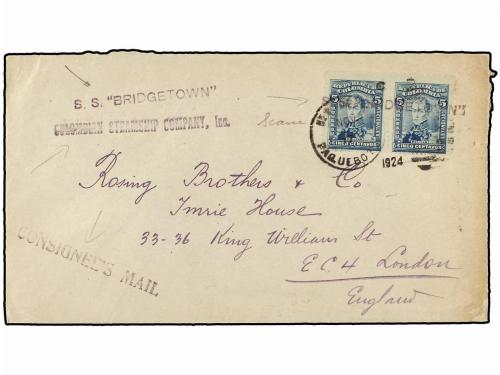 S. S. "BRIDGETOWN"
COLOMBIAN STEAMSHIP COMPANY, Inc.
REPUBLICA DE COLOMBIA
5 5
CINCO CENTAVOS
REPUBLICA DE COLOMBIA
5 5
CINCO CENTAVOS
PAQUEBOT
1924
Rosing Brothers & Co
Imrie House
33-36 King William St
E.C. 4 London
England
CONSIGNEE'S MAIL